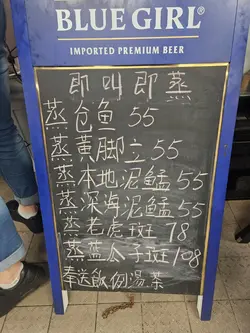 BLUE GIRL®
IMPORTED PREMIUM BEER
即叫即蒸
蒸仓鱼 55
蒸黄脚立 55
蒸本地泥鯭 55
蒸深海泥鯭 55
蒸老虎斑 78
蒸蓝瓜子斑 108
奉送飲例湯菜